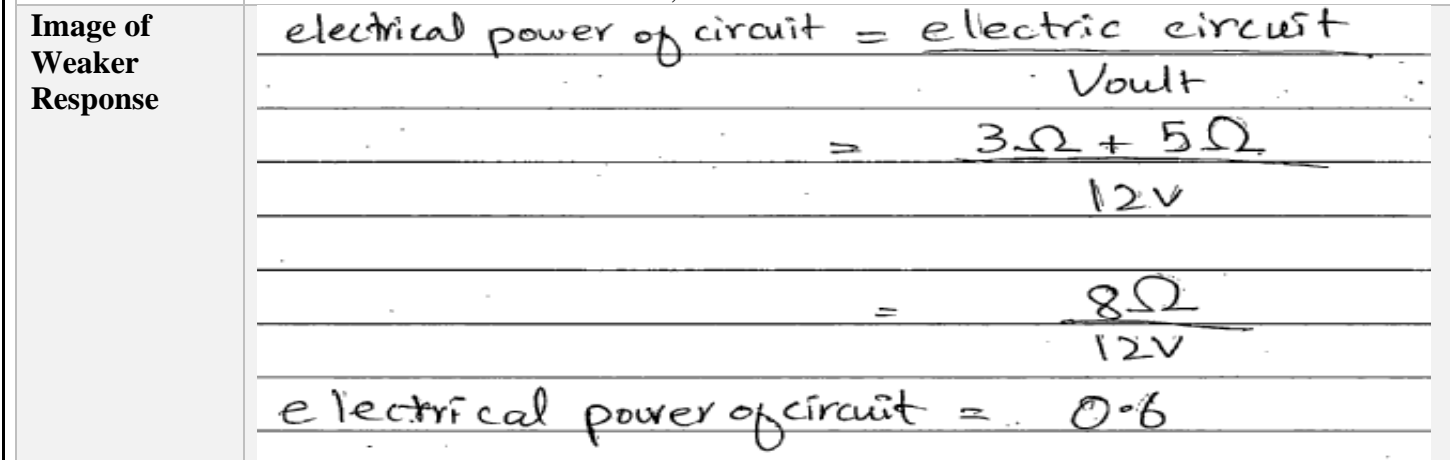 Image of
Weaker
Response
electrical power of circuit = ellectric circuit
Voult
= 3Ω + 5Ω
12V
= 8Ω
12V
electrical power of circuit = 0.6